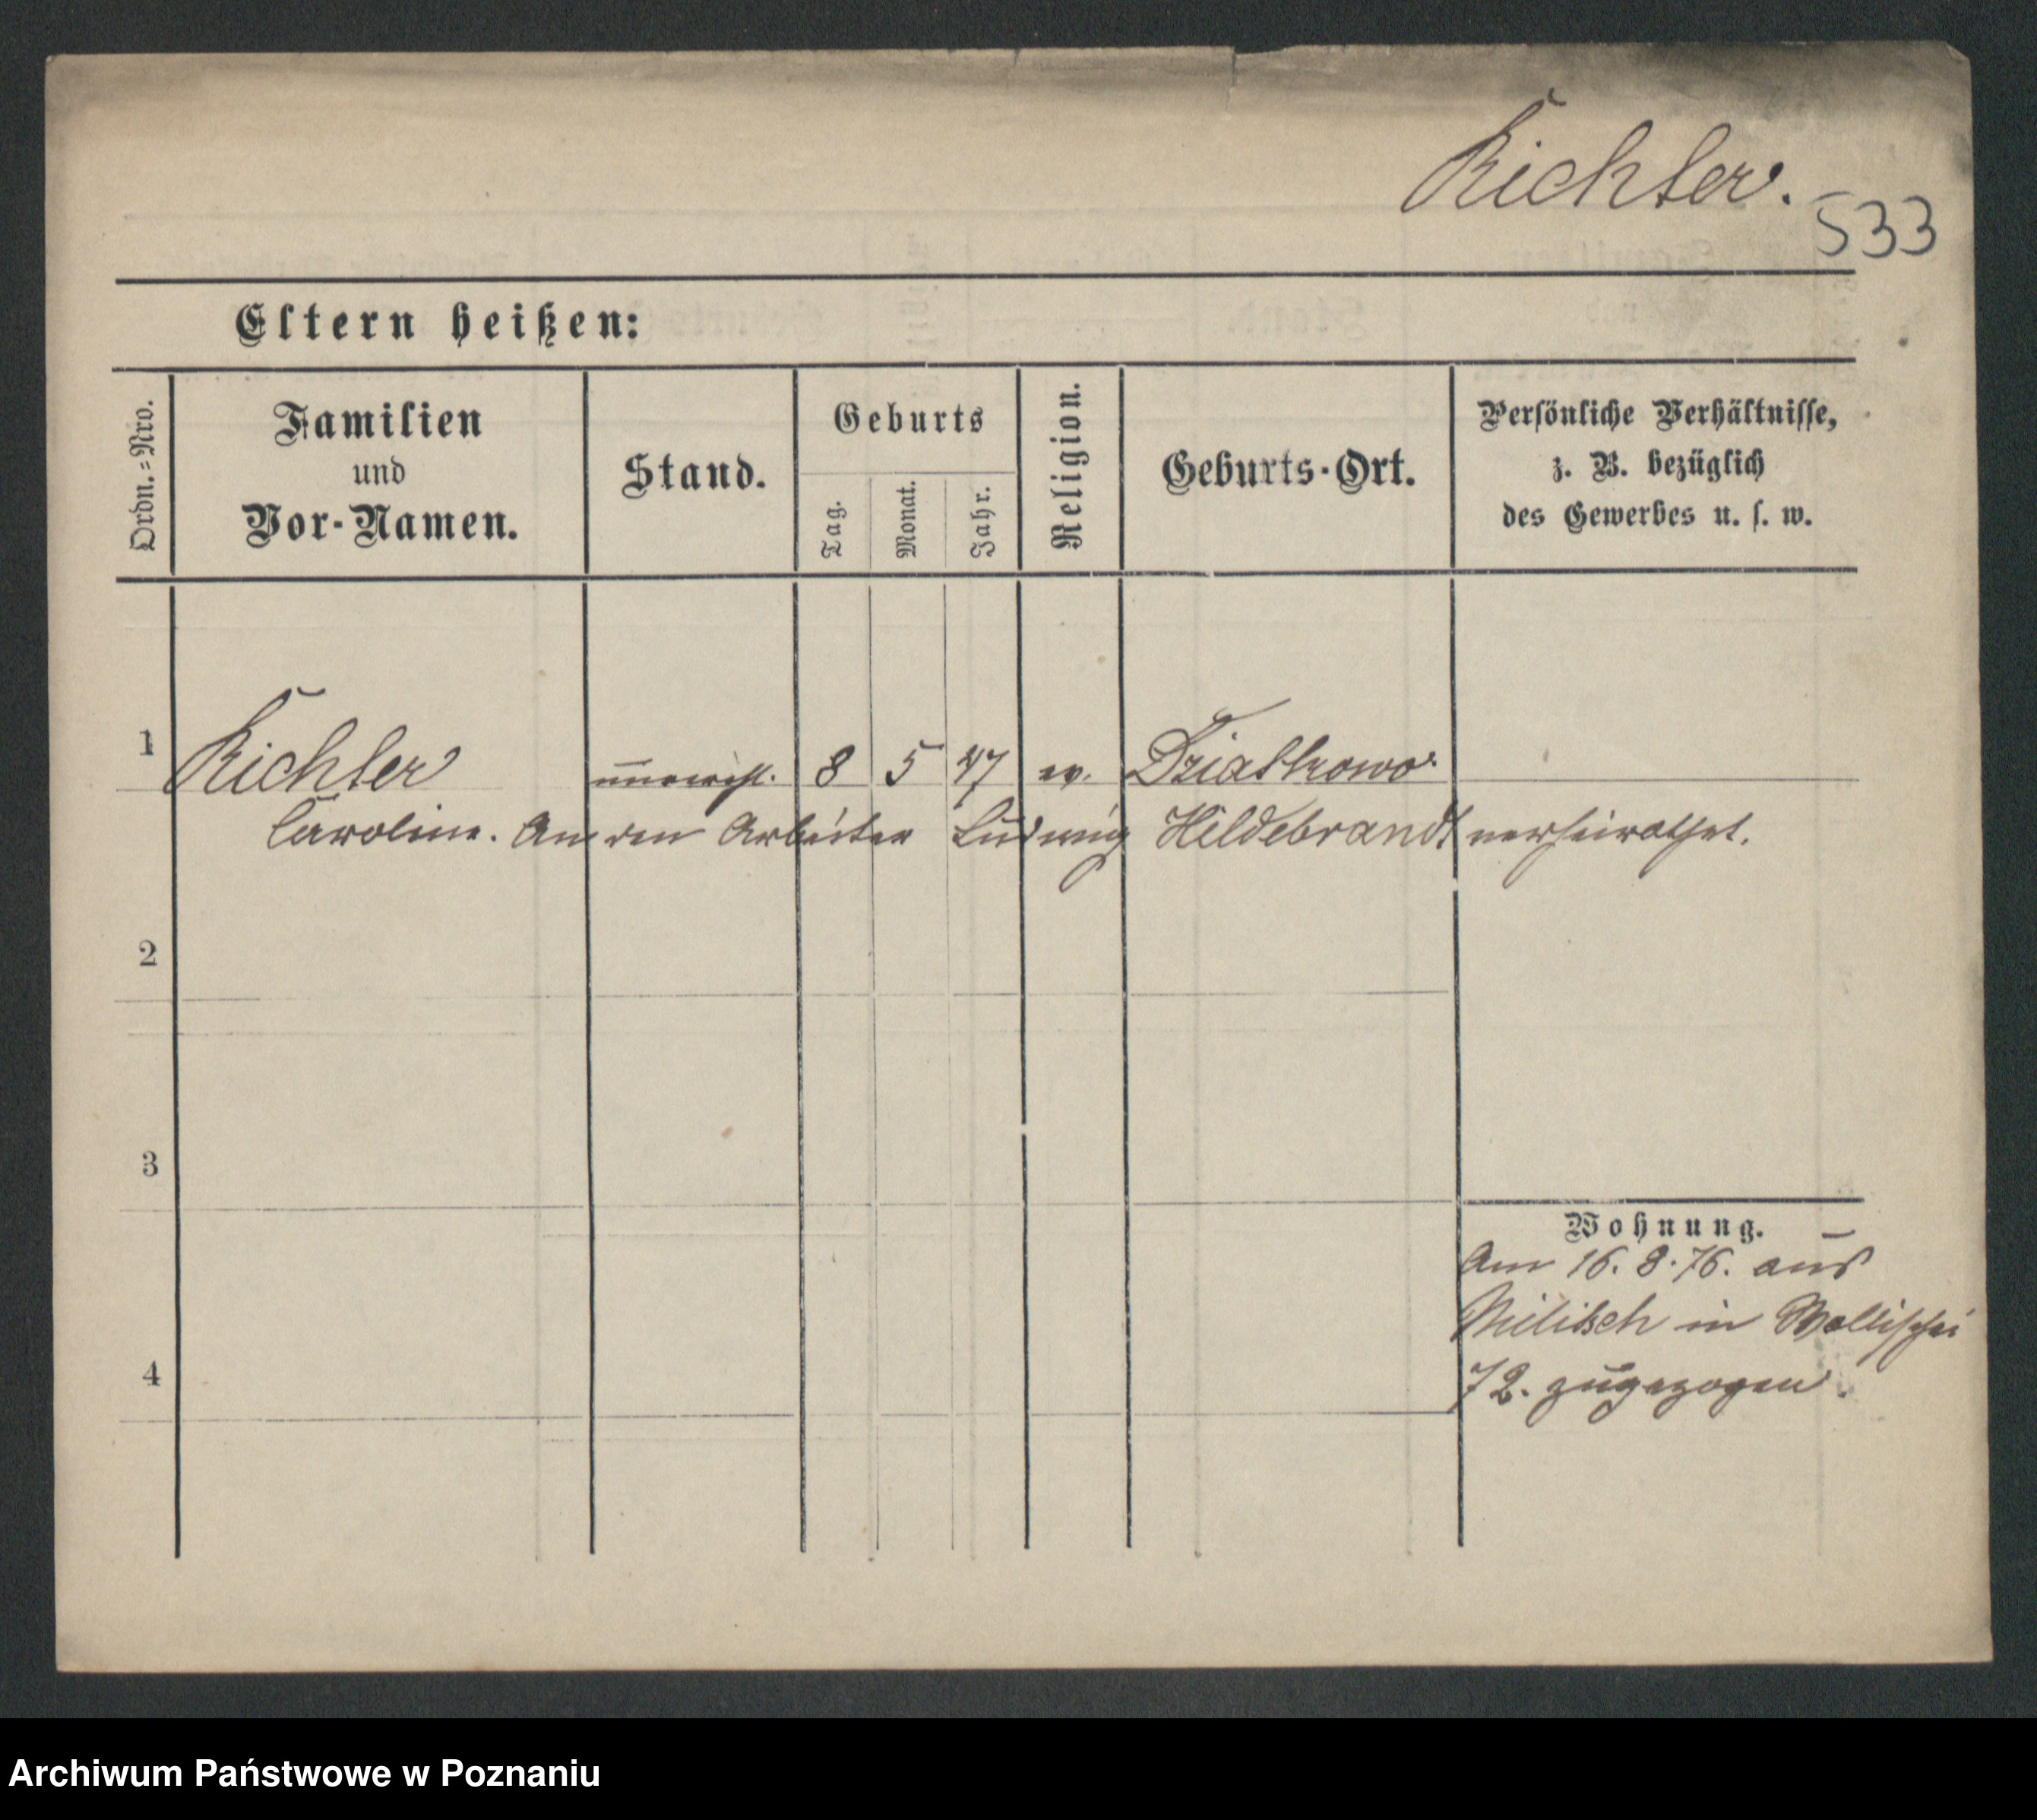 Richter.
533
Eltern heißen:
Ordn.=Nro.
Familien
und
Vor-Namen.
Stand.
Geburts
Tag.
Monat.
Jahr.
Religion.
Geburts-Ort.
Persönliche Verhältnisse,
z. B. bezüglich
des Gewerbes u. s. w.
1 Richter unverehl. 8 5 47 ev. Dziatkowo
Caroline. An den Arbeiter Ludwig Hildebrandt verheirathet.
2
3
Wohnung.
Am 16. 8. 76. aus
Militsch in Wallischei
4
72. zugezogen.
Archiwum Państwowe w Poznaniu